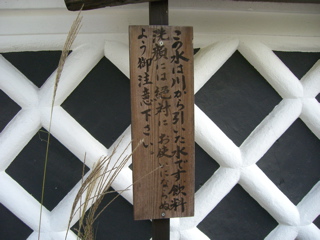 この水は川から引いた水です飲料
洗顔には絶対にお使いにならぬ
よう御注意下さい。